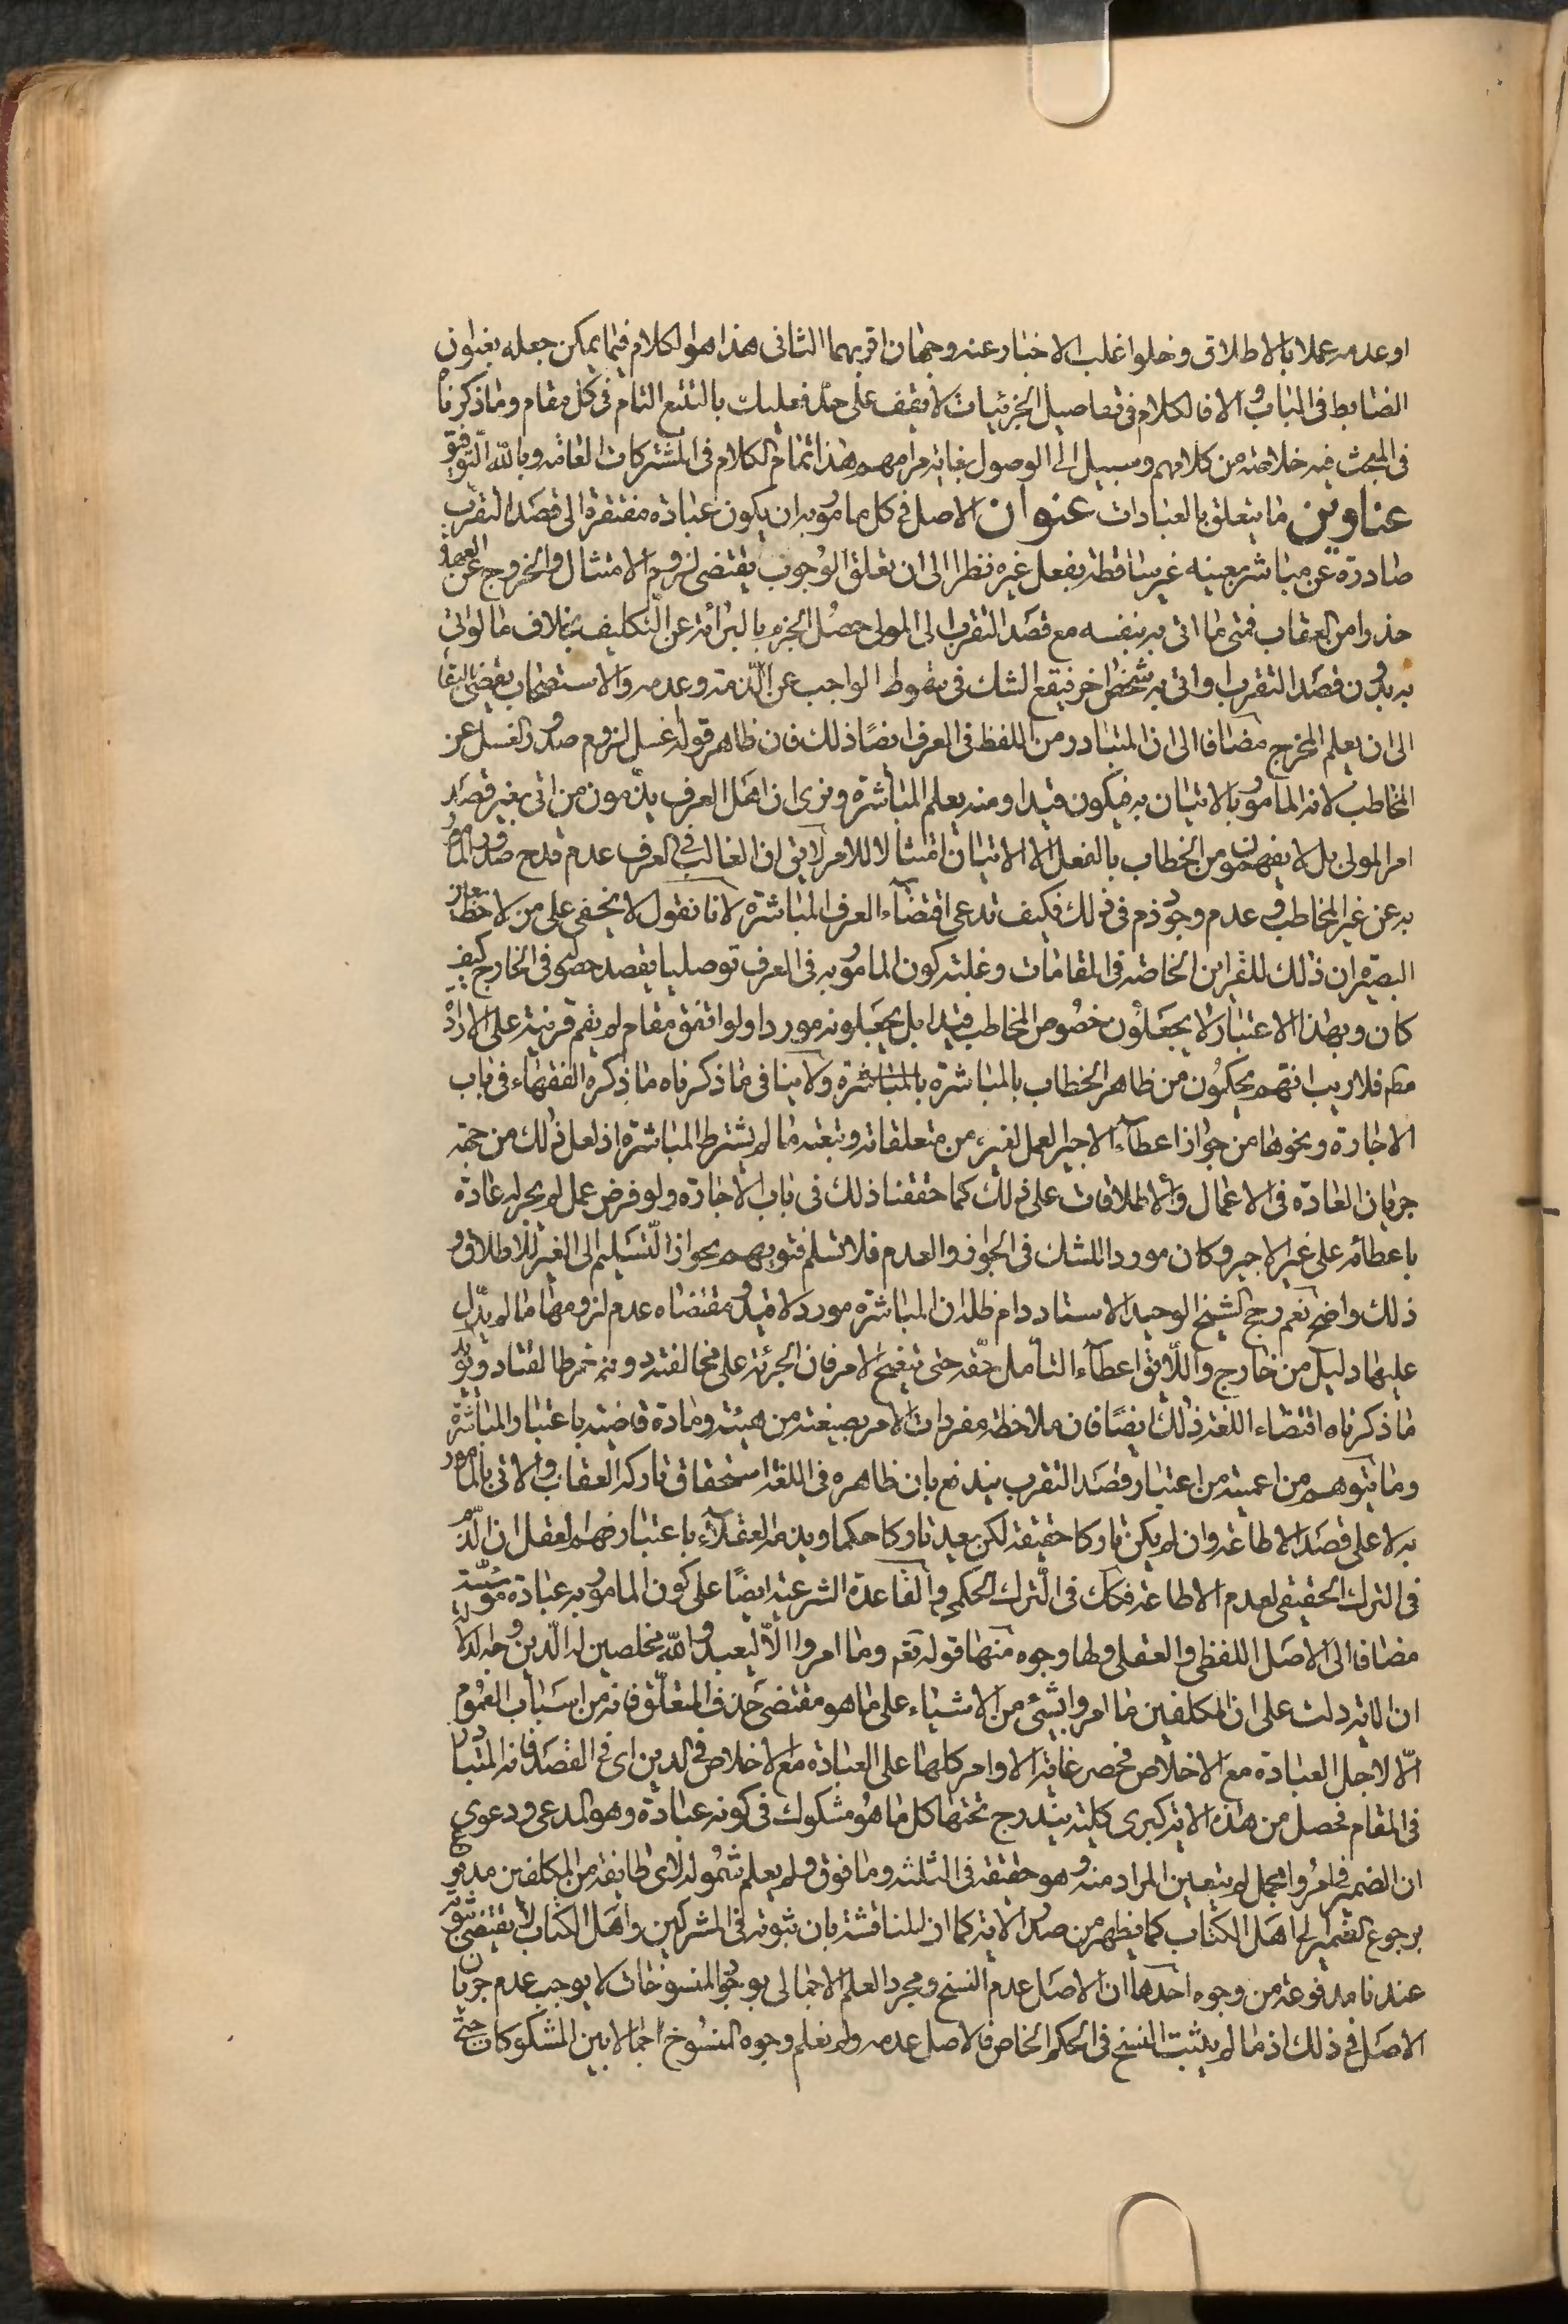 او عدمه عملا بالاطلاق و خلوا غلب الاخبار عنه وجهان اقربهما الثانى هذا هو الكلام فيما يمكن جعله بعنوان
الضابط فى الباب و الا فالكلام فى تفاصيل الجزئيات لا يقف على حد فعليك بالتتبع التام فى كل مقام و ما ذكرنا
فى المبحث فيه خلاصة من كلامهم و سبيل الى الوصول بغاية مرامهم هذا تمام الكلام فى المشتركات العامة و بالله التوفيق
عناوين ما يتعلق بالعبادات عنوان الاصل فى كل مامور به ان يكون عبادة مفتقرة الى قصد التقرب
صادرة عن مباشر معينه غير ساقطة بفعل غيره نظرا الى ان تعلق الوجوب يقتضى لزوم الامتثال و الخروج عن العهدة
حذرا من العقاب فمتى ما اتى به بنفسه مع قصد التقرب الى المولى حصل الجزم بالبرائة عن التكليف بخلاف ما لو اتى
به بدون قصد التقرب او اتى به شخص اخر فيقع الشك فى سقوط الواجب عن الذمة و عدمه و الاستصحاب يقضى بالبقا
الى ان يعلم المخرج مضافا الى ان المتبادر من اللفظ فى العرف ايضا ذلك فان ظاهر قوله اغسل لزوم صدور الغسل عن
المخاطب لانه المامور بالاتيان به فيكون قيدا و منه يعلم المباشرة و نرى ان اهل العرف يذمون من اتى بغير قصد
امر المولى بل لا يفهمون من الخطاب بالفعل الا الاتيان امتثالا للامر لايق ان الغالب فى العرف عدم قدح صدور المامور
به عن غير المخاطب و عدم وجود ذم فى ذلك فكيف تدعى اقتضاء العرف المباشرة لانا نقول لا يخفى على من لاحظ بعين
البصيرة ان ذلك للقراين الخاصة فى المقامات و غلبة كون المامور به فى العرف توصليا يقصد حصوله فى الخارج كيف
كان و بهذا الاعتبار لا يجعلون خصوص المخاطب قيدا بل يجعلونه موردا و لو اتفق مقام لم يقم قرينة على الارادة
مط فلا ريب انهم يحكمون من ظاهر الخطاب بالمباشرة بالمباشرة و لا ينافى ما ذكرناه ما ذكره الفقهاء فى باب
الاجارة و نحوها من جواز اعطاء الاجير العمل لغيره من متعلقاته و تبعته ما لم يشترط المباشرة اذ لعل ذلك من جهة
جريان العادة فى الاعمال و الاطلاقات على ذلك كما حققنا ذلك فى باب الاجارة و لو فرض عمل لم يجر له عادة
باعطائه على غير الاجير و كان موردا للشك فى الجواز و العدم فلا نسلم فتويهم بجواز التسليم الى الغير للاطلاق و
ذلك واضح نعم رجح الشيخ الوحيد الاستاد دام ظله ان المباشرة مورد لا قيد و مقتضاه عدم لزومها ما لم يدل
عليها دليل من خارج و اللايق اعطاء التامل حقه حتى يتضح الامر فان الجرئة على مخالفته دونه خرط القتاد و يؤيد
ما ذكرناه اقتضاء اللغة ذلك ايضا فان ملاحظة مفردات الامر بصيغته من هيئة و مادة قاضية باعتبار المباشرة
و ما يتوهم من اعميته من اعتبار قصد التقرب يندفع بان ظاهره فى اللغة استحقاق تاركه العقاب و الاتى بالمامور
به لا على قصد الاطاعة و ان لم يكن تاركا حقيقة لكن يعد تاركا حكما و يذمه العقلاء باعتبار فهم العقل ان الذم
فى الترك الحقيقى لعدم الاطاعة فكك فى الترك الحكمى و القاعدة الشرعية ايضا على كون المامور به عبادة مؤسسة
مضافا الى الاصل اللفظى و العقلى و لها وجوه منها قوله تعم و ما امروا الا ليعبدوا الله مخلصين له الدين و وجه الدلالة
ان الاية دلت على ان المكلفين ما امروا بشئ من الاشياء على ما هو مقتضى حذف المتعلق فانه من اسباب العموم
الا لاجل العبادة مع الاخلاص فحصر غاية الاوامر كلها على العبادة مع الاخلاص فى الدين اى فى القصد فانه المتبادر
فى المقام فحصل من هذه الاية كبرى كلية يندرج تحتها كل ما هو مشكوك فى كونه عبادة و هو المدعى و دعوى
ان الضمير فى امروا مجمل لم يتعين المراد منه و هو حقيقة فى الثلثة و ما فوق و لم يعلم شموله لاى طايفة من المكلفين مدفوع
برجوع الضمير الى اهل الكتاب كما يظهر من صدر الاية كما ان المناقشة بان ثبوته فى المشركين و اهل الكتاب لا يقتضى ثبوته
عندنا مدفوعة من وجوه احدها ان الاصل عدم النسخ و مجرد العلم الاجمالى بوجود المنسوخات لا يوجب عدم جريان
الاصل فى ذلك اذ ما لم يثبت النسخ فى الحكم الخاص فالاصل عدمه و لم نعلم وجوه المنسوخ اجمالا بين المشكوكات حتى